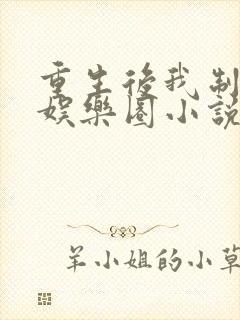 重生後我制
娛樂圈小說
羊小姐的小草